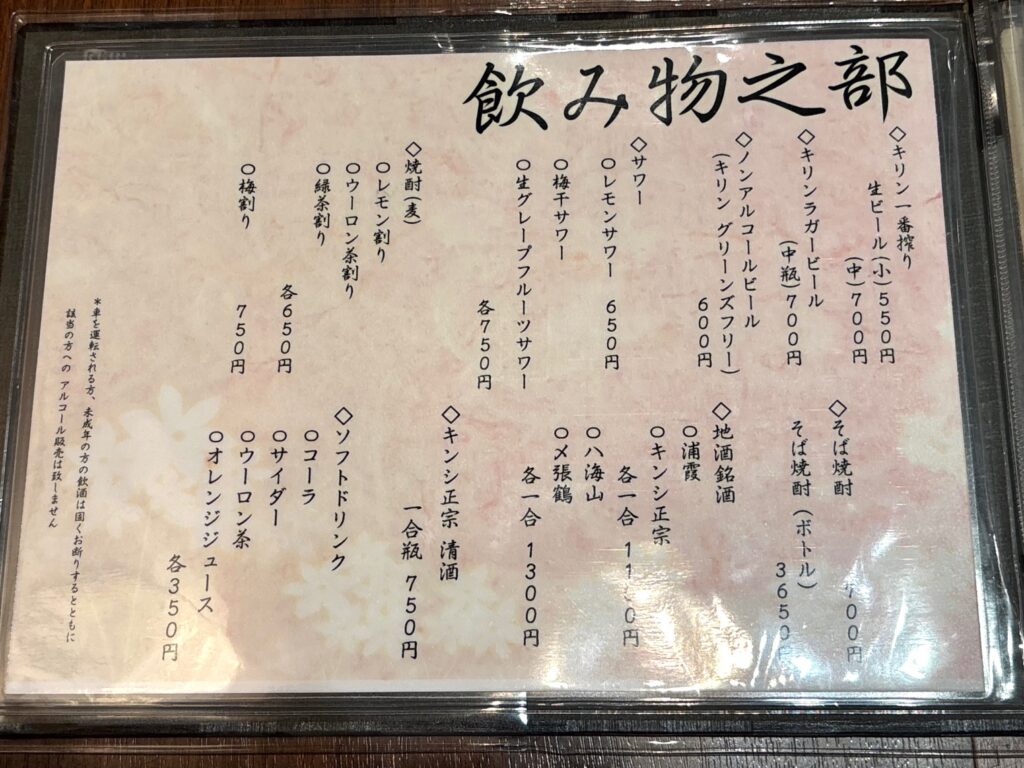 飲み物之部
◇キリン一番搾り
生ビール(小)550円
(中)700円
◇キリンラガービール
(中瓶)700円
◇ノンアルコールビール
(キリン グリーンズフリー)
600円
◇サワー
○レモンサワー 650円
○梅干サワー
○生グレープフルーツサワー
各750円
◇焼酎(麦)
○レモン割り
○ウーロン茶割り
○緑茶割り
各650円
○梅割り 750円
◇そば焼酎 700円
そば焼酎(ボトル)
3650円
◇地酒銘酒
○浦霞
○キンシ正宗
各一合
○八海山
○〆張鶴
各一合 1300円
◇キンシ正宗 清酒
一合瓶 750円
◇ソフトドリンク
○コーラ
○サイダー
○ウーロン茶
○オレンジジュース
各350円
*車を運転される方、未成年の方の飲酒は固くお断りするとともに
該当の方への アルコール販売は致しません